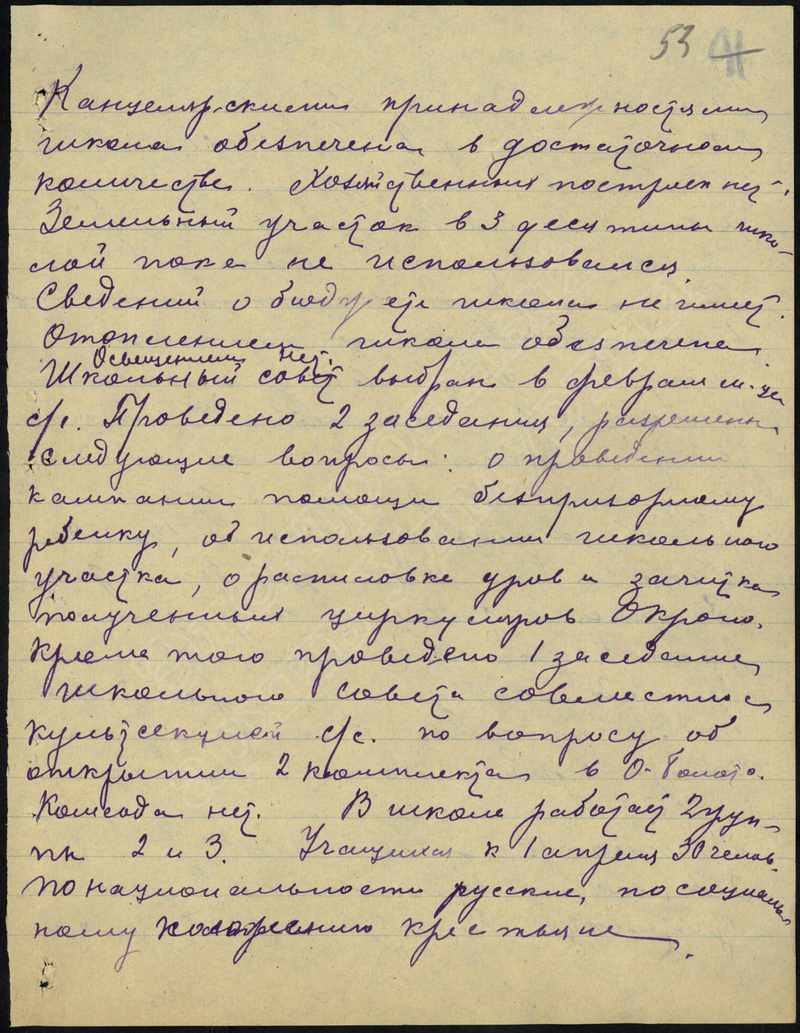 53
Канцелярскими принадлежностями
школа обезпечена в достаточном
количестве. Хозяйственных построек нет.
Земельный участок в 3 десятины шко-
лой пока не использовался.
Сведений о бюджете школа не имеет.
Отоплением школа обезпечена.
Освещением нет.
Школьный совет выбран в феврале м-це
с/г. Проведено 2 заседания, разрешены
следующие вопросы: о проведении
кампании помощи безпризорному
ребенку, об использовании школьного
участка, о распиловке дров и зачитка
полученных циркуляров Окроно.
Кроме того проведено 1 заседание
школьного совета совместно с
культсекцией с/с. по вопросу об
открытии 2 комплекта в О-Болото.
Комсода нет. В школе работает 2 груп-
пы 2 и 3. Учащихся к 1 апреля 30 челов.
по национальности русские, по социаль-
ному положению крестьяне.